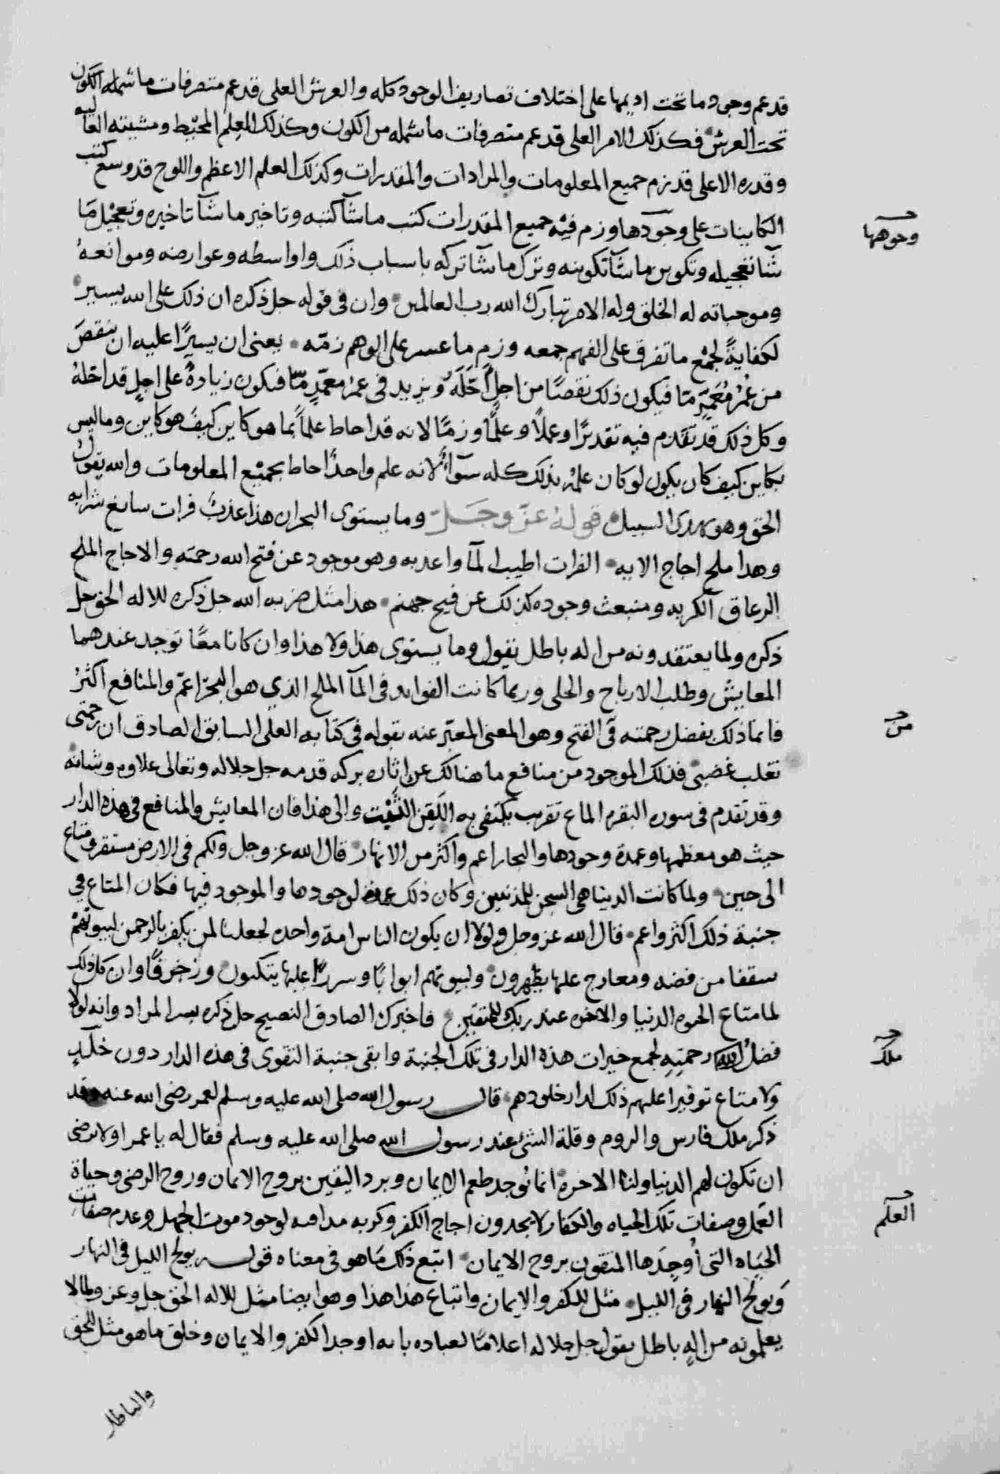 قد عم وجود ما تحت اديمها على اختلاف تصاريف الوجود كله والعرش العلى قد عم متصرفات ما شمله الكون
تحت العرش فكذلك الامر العلى قد عم متصرفات ما شمله من الكون وكذلك العلم المحيط ومشيته العالية
وقدره الاعلى قد زم جميع المعلومات والمرادات والمقدرات وكذلك العلم الاعظم واللوح قد وسع كتب
الكاينات على وجودها وزم فيه جميع المقدرات كتب ما شآ كتبه وتاخير ما شآ تاخيره وتعجيل ما
وجوهها
شآ تعجيله وتكوين ما شآ تكوينه وترك ما شآ تركه باسباب ذلك واواسطه وعوارضه وموانعه
وموجباته له الخلق وله الامر تبارك الله رب العالمين وان في قوله جل ذكره ان ذلك على الله يسير
لكفايةً لجمع ما تفرق على الفهم جمعه وزم ما عسر على الوهم زمّه يعنى ان يسيرًا عليه ان ينقص
من عُمُر مُعَمّرٍ مّا فيكون ذلك نقصًا من اجلٍ اجّله ويزيد في عمر معمّرٍ مّا فيكون زيادةً على اجلٍ قد اجّلهُ
وكل ذلك قد تقدم فيه تقديرًا وعملًا وعلمًا وزمًا لانه قد احاط علمًا بما هو كاين كيف هو كاين وما ليس
بكاين كيف كان يكون لو كان علمه بذلك كله سوآءً لانه علم واحدًا احاط بجميع المعلومات والله يقول
الحق وهو يهدى السبيل قوله عز وجل وما يستوى البحران هذا عذب فرات سايغ شرابه
وهذا ملح اجاج الايه الفرات اطيب المآ واعذبه وهو موجود عن فتح الله رحمته والاجاج الملح
الزعاق الكريه ومنبعث وجوده كذلك عن فيح جهنم هذا مثل ضربه الله جل ذكره للاله الحق جل
ذكره ولما يعتقدونه من اله باطل يقول وما يستوى هذا ولا هذا وان كانا معًا توجد عندهما
المعايش وطلب الارباح والحلى وربما كانت الفوايد في المآ الملح الذي هو البحر اعم والمنافع اكثر
فانما ذلك بفضل رحمته في الفتح وهو المعنى المعبّر عنه بقوله في كتابه العلى السابق الصادق ان رحمتى
من
تغلب غضبى فذلك الموجود من منافع ما هنالك عن اثاره بركه قدمه جل جلاله وتعالى علاوه وشانه
وقد تقدم في سوره البقره الماع تقريب يكتفي به اللقن الثبت والى هذا فان المعايش والمنافع في هذه الدار
حيث هو معظمها وعمدة وجودها والبحار اعم واكثر من الانهار قال الله عز وجل ولكم في الارض مستقر ومتاع
الى حين ولما كانت الدنيا هى السجن للمذنبين وكان ذلك لوجودها والموجود فيها فكان المتاع في
جنبة ذلك اكثر واعم قال الله عز وجل ولولا ان يكون الناس امة واحده لجعلنا لمن يكفر بالرحمن لبيوتهم
سقفا من فضه ومعارج عليها يظهرون ولبيوتهم ابوابًا وسررًا عليها يتكئون وزخرفًا وان كل ذلك
لما متاع الحيوه الدنيا والاخره عند ربك للمتقين فاخبرك الصادق النصيح جل ذكره بسر المراد وانه لولا
فضل الله رحمته لجمع خيرات هذه الدار في تلك الجنبة وابقى جنبة التقوى في هذه الدار دون
ملك
ولا متاع توفيرا عليهم ذلك لدار خلودهم قال رسول الله صلى الله عليه وسلم لعمر رضى الله عنه وقد
ذكر ملك فارس والروم وقلة الشئ عند رسول الله صلى الله عليه وسلم فقال له يا عمر اولا ترضى
ان تكون لهم الدنيا ولنا الاخره انما نوجد طعم الايمان وبرد اليقين بروح الايمان وروح الرضى وحياة
العمل وصفات تلك الحياه والكفار لا يجدون اجاج الكفر وكربه مذاقه لوجود موت الجهل وعدم صفات
العلم
الحياه التى اُوجدها المتقون بروح الايمان اتبع ذلك ما هو في معناه قوله يولج الليل في النهار
ويولج النهار في الليل مثل للكفر والايمان واتباع هذا هذا وهو ايضا مثل للاله الحق جل وعز ولما لا
يعلمونه من الهٍ باطل يقول جل جلاله اعلامًا لعباده بانه اوجد الكفر والايمان وخلق ما هو مثل للحق
والباطل